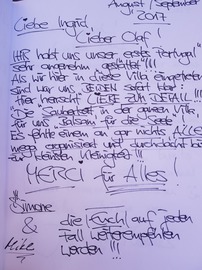 August/September
2017
Liebe Ingrid,
Lieber Olaf!
IHR habt uns unser erstes "Portugal"
sehr angenehm gestaltet!!!
Als wir hier in diese Villa eingetreten
sind war uns JEDEN sofort klar:
Hier herrscht LIEBE ZUM DETAIL!!!
Die Sauberkeit in der ganzen Villa,
pur "Balsam für die Seele"!
Es fehlte einem an gar nichts, ALLES
mega organisiert und durchdacht bis
zur kleinsten Kleinigkeit!!!
MERCI für Alles!
Simone
&
Mike
die EUCH auf jeden
Fall weiterempfehlen
werden!!!